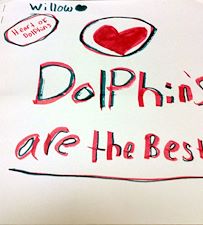 Willow
Heart of
Dolphins
DolPhin's
are the Best